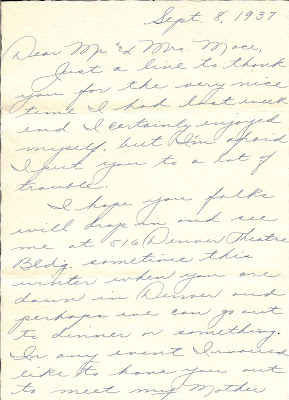 Sept. 8, 1937
Dear Mr. & Mrs. Mace,
Just a line to thank
you for the very nice
time I had last week
end. I certainly enjoyed
myself, but I'm afraid
I put you to a lot of
trouble.
I hope you folks
will drop in and see
me at 516 Denver Theatre
Bldg. sometime this
winter when you are
down in Denver and
perhaps we can go out
to dinner or something.
In any event I would
like to have you out
to meet my Mother